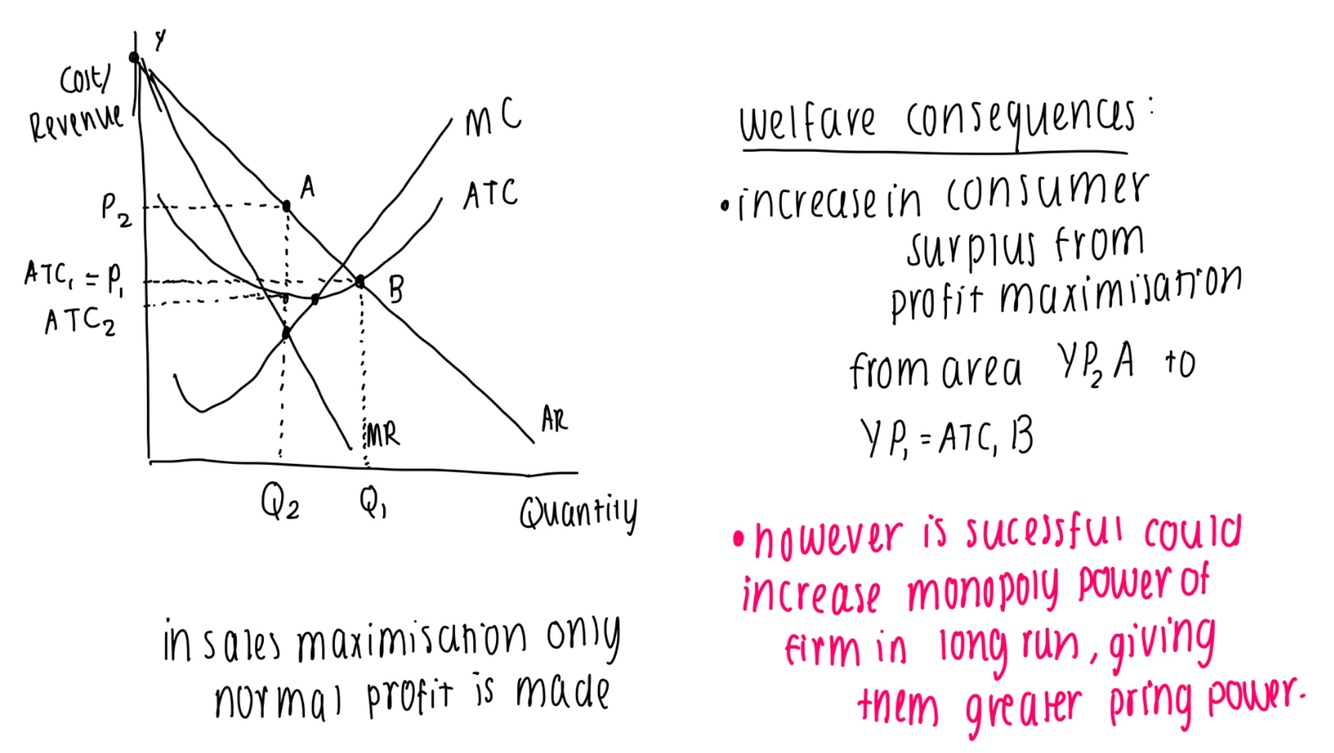 Y
Cost/
Revenue
MC
A
ATC
P2
ATC1 = P1
B
ATC2
AR
MR
Q2
Q1
Quantity
in sales maximisation only
normal profit is made
welfare consequences:
•increase in consumer
surplus from
profit maximisation
from area YP2A to
YP1=ATC1B
•however is sucessful could
increase monopoly power of
firm in long run, giving
them greater pring power.